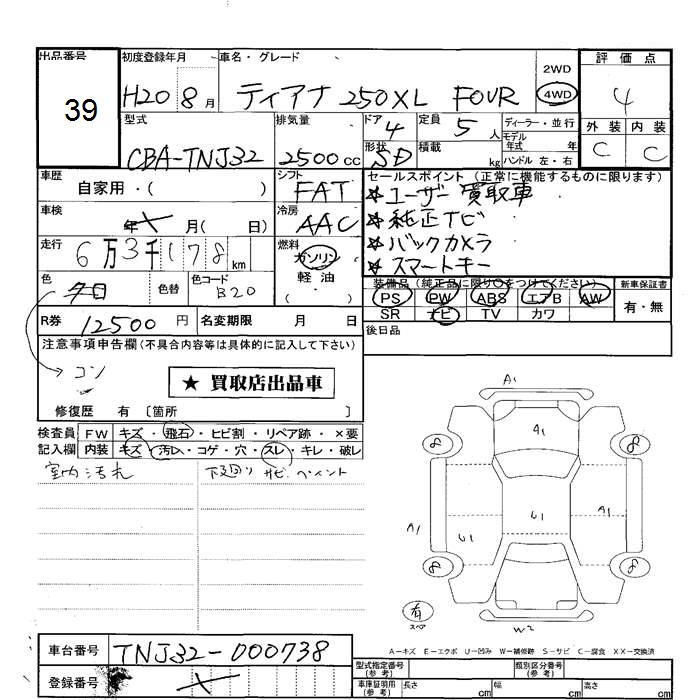 出品番号 初度登録年月 車名・グレード 評価点
39 H20 8月 ティアナ 250XL FOUR 2WD 4WD 4
型式 排気量 ドア 定員 ディーラー・並行 外装 内装
CBA-TNJ32 2500cc 4 5人 モデル年式 年 C C
形状 積載
SD kg ハンドル 左・右
車歴 シフト セールスポイント (正常に機能するものに限ります)
自家用・( ) FAT ☆ユーザー買取車
車検 冷房 ☆純正ナビ
年 月( 日) AAC ☆バックカメラ
走行 燃料 ☆スマートキー
6万3千178km ガソリン
軽油
( ・ )
色 色替 色コード 装備品(純正品に限り○をつけてください) 新車保証書
クロ B20 PS PW ABS エアB AW 有・無
SR ナビ TV カワ
R券 12500円 名変期限 月 日 後日品
注意事項申告欄(不具合内容等は具体的に記入して下さい)
コン
★ 買取店出品車
修復歴 有 〔箇所 〕
検査員 FW キズ・飛石・ヒビ割・リペア跡・×要
記入欄 内装 キズ・汚レ・コゲ・穴・スレ・キレ・破レ
室内汚れ 下廻り サビ ペイント
A1
A1
8 8
A1 U1 U1 A1
8 8
有
スペア
W2
A-キズ E-エクボ U-凹み W-補修跡 S-サビ C-腐食 XX-交換済
車台番号 TNJ32-000738
型式指定番号(参考) 類別区分番号(参考)
登録番号
車庫証明用(参考) 長さ cm 幅 cm 高さ cm